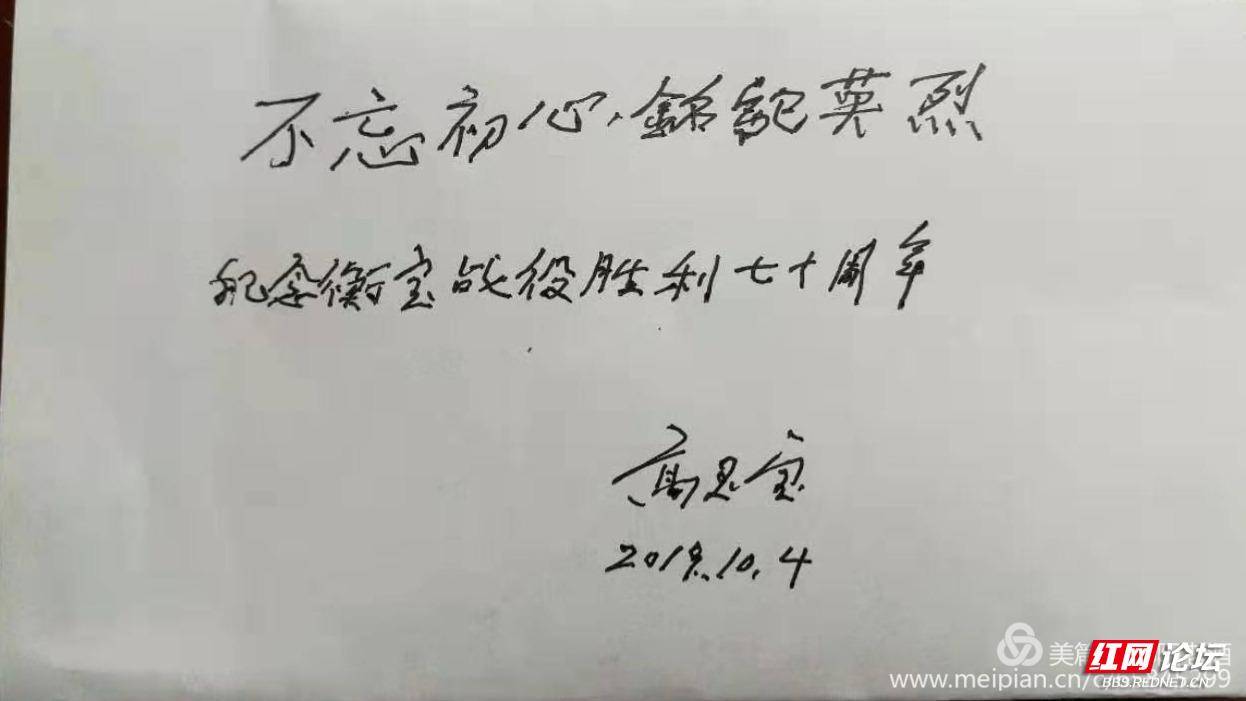 不忘初心,銘記英烈
纪念衡宝战役胜利七十周年
高思宝
2019.10.4
美篇
红网论坛
BBS.REDNET.CN
www.meipian.cn/